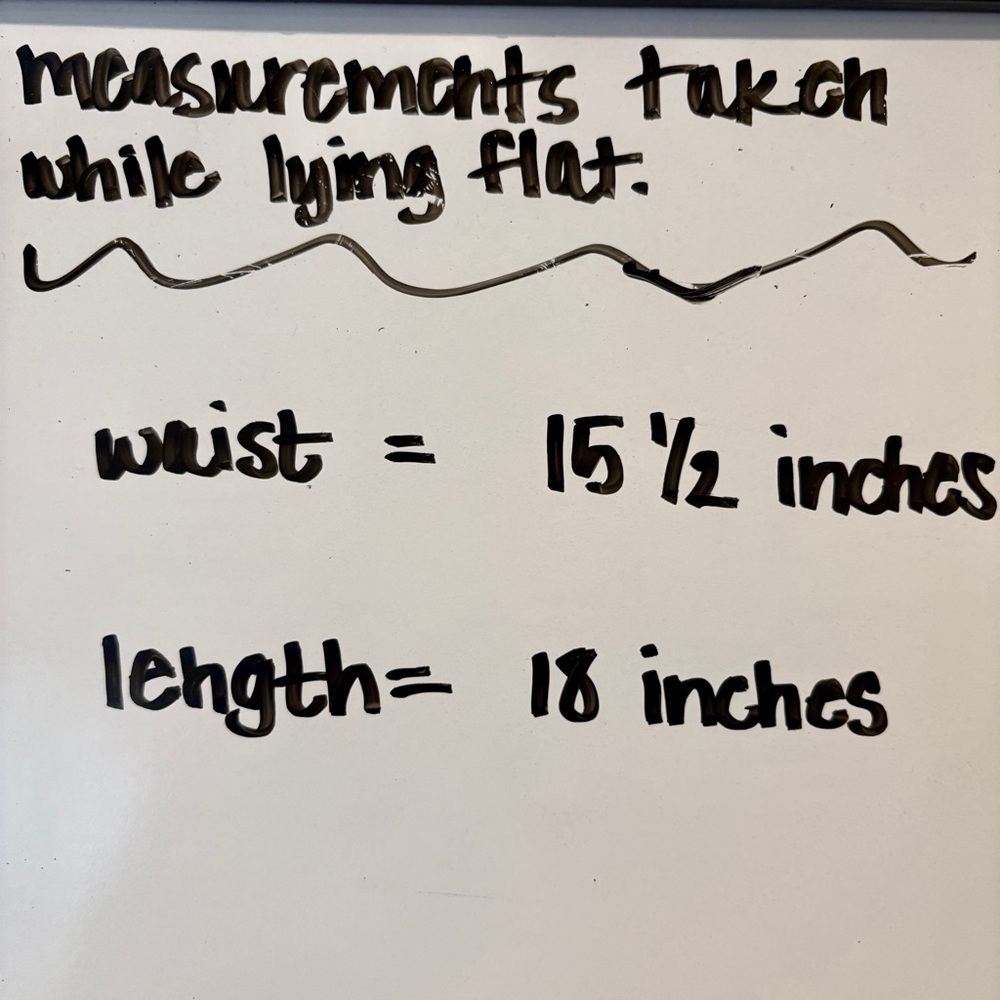 measurements taken
while lying flat.
waist = 15 1/2 inches
length= 18 inches